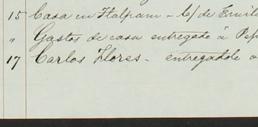 15 Casa en Tlalpam - C/ de Emil
" Gastos de casa entregado á Pep
17 Carlos Flores - entregadole a